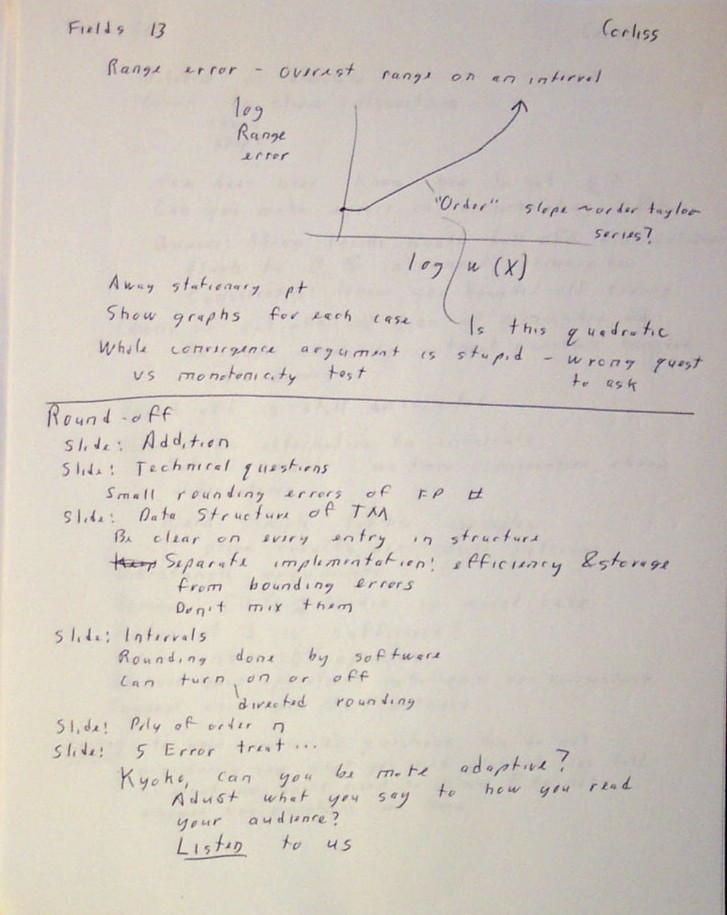 Fields 13
Corliss
Range error - overest range on an interval
log
Range
error
"Order" slope ~order taylor
series?
log w (X)
Away stationary pt
Show graphs for each case
Is this quadratic
Whole convergence argument is stupid - wrong quest
to ask
vs monotonicity test
Round-off
Slide: Addition
Slide: Technical questions
Small rounding errors of FP #
Slide: Data Structure of TM
Be clear on every entry in structure
Keep Separate implementation: efficiency & storage
from bounding errors
Don't mix them
Slide: Intervals
Rounding done by software
Can turn on or off
directed rounding
Slide: Poly of order n
Slide: 5 Error treat...
Kyoko, can you be more adaptive?
Adust what you say to how you read
your audience?
Listen to us